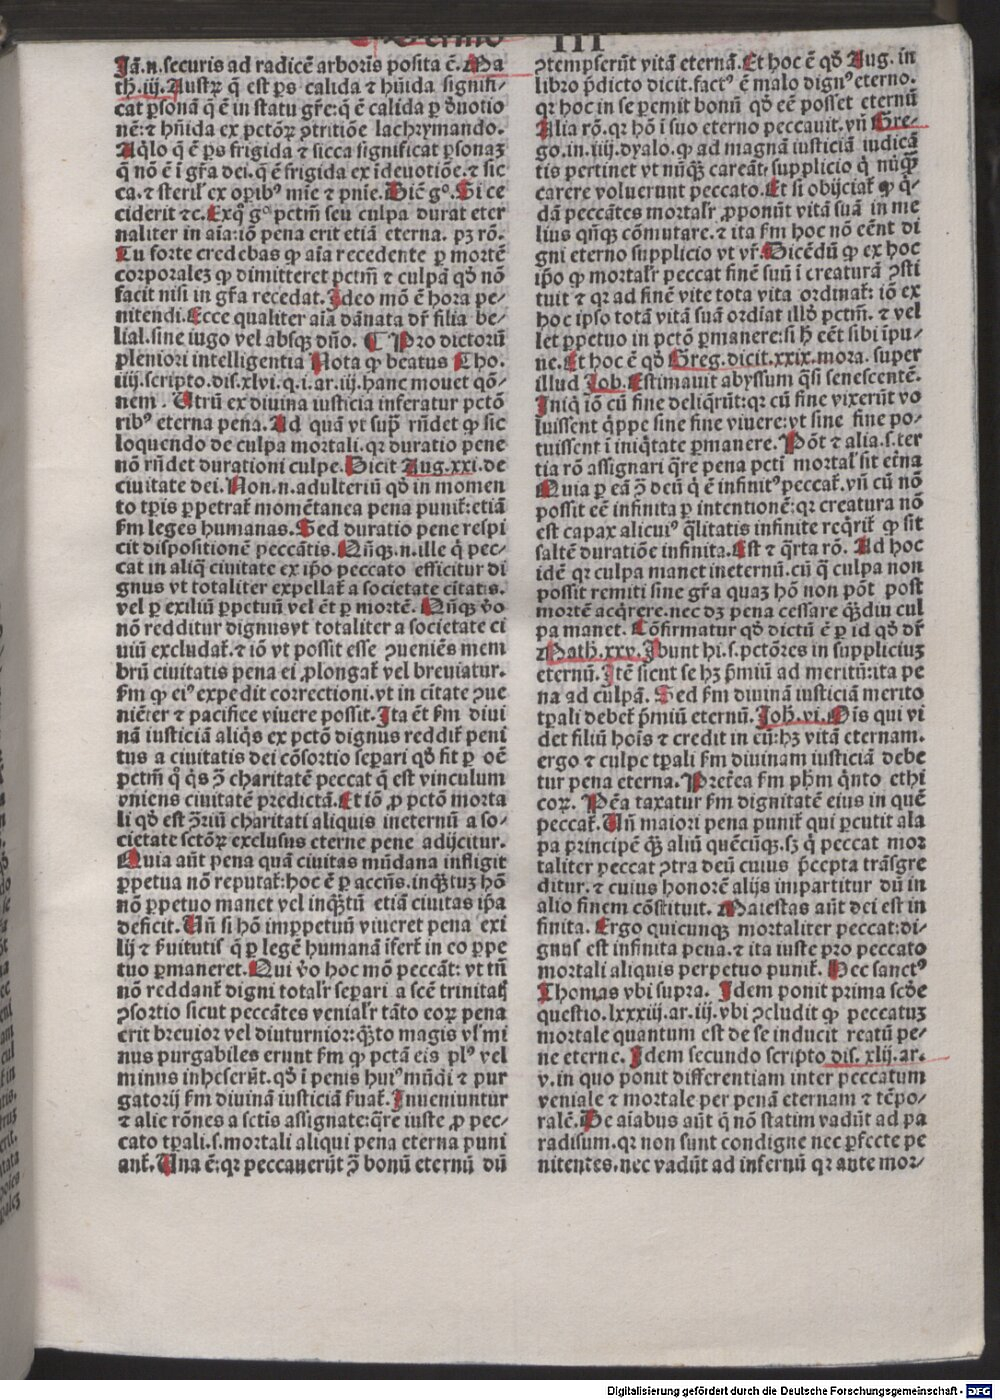 Sermo III
Jā.n.securis ad radicē arboris posita ē.Ma
th.iij.Austꝝ q̄ est ꝑs calida ⁊ hūida signifi-
cat ꝑsonā q̄ ē in statu gr̄e:q̄ ē calida ꝑ deuotio
nē:⁊ hūida ex pctōꝝ ꝯtritiōe lachrymando.
Aq̇lo q̄ ē ꝑs frigida ⁊ sicca significat ꝑsonaꝫ
q̄ nō ē ī gr̄a dei.q̄ ē frigida ex ideuotiōe.⁊ sic
ca.⁊ steril' ex oꝑibꝰ mīe ⁊ pnīe.Dicē gͦ.Si ce
ciderit ⁊c.Exq̇ gͦ pctm̄ seu culpa durat eter
naliter in aīa:iō pena erit etiā eterna. pꝫ rō.
Tu forte credebas ꝙ aīa recedente ꝑ mortē
corporaleꝫ ꝙ dimitteret pctm̄ ⁊ culpā qd̄ nō
facit nisi in gr̄a recedat.Ideo mō ē hora pe-
nitendi.Ecce qualiter aīa dānata dr̄ filia be-
lial.sine iugo vel absqꝫ dn̄o. ¶ Pro dictorū
pleniori intelligentia Nota ꝙ beatus Tho.
iiij.scripto.dis.xlvi.q.i.ar.iij.hanc mouet qō-
nem. Utrū ex diuina iusticia inferatur pctō
ribꝰ eterna pena.Ad quā vt supͣ rn̄det ꝙ sic
loquendo de culpa mortali.qꝛ duratio pene
nō rn̄det durationi culpe.Dicit Aug.xxi.de
ciuitate dei.Non.n.adulteriū qd̄ in momen
to tp̄is ꝑpetrat' momētanea pena punit':etiā
ẜm leges humanas.Sed duratio pene respi
cit dispositionē peccātis.Qn̄qꝫ.n.ille q̇ pec-
cat in aliq̇ ciuitate ex ip̄o peccato efficitur di
gnus vt totaliter expellat' a societate citatis.
vel ꝑ exiliū ꝑpetuū vel ēt ꝑ mortē. Qn̄qꝫ v̄o
nō redditur dignus vt totaliter a societate ci
uiū excludat'.⁊ iō vt possit esse ꝯueniēs mem
brū ciuitatis pena ei ꝓlongat' vel breuiatur.
ẜm ꝙ eiꝰ expedit correctioni.vt in citate ꝯue
niēter ⁊ pacifice viuere possit.Ita ēt ẜm diui
nā iusticiā aliq̇s ex pctō dignus reddit' peni
tus a ciuitatis dei cōsortio seꝑari qd̄ fit ꝑ oē
pctm̄ q̇ q̇s ꝯ̄ charitatē peccat q̄ est vinculum
vniens ciuitatē predictā.Et iō ꝓ pctō morta
li qd̄ est ꝯ̄riū charitati aliquis ineternū a so-
cietate sctōꝝ exclusus eterne pene adijcitur.
Quia aūt pena quā ciuitas mūdana infligit
ꝑpetua nō reputat':hoc ē ꝑ accn̄s.inqͣꝫtuꝫ hō
nō ꝑpetuo manet vel inqͣꝫtū etiā ciuitas ip̄a
deficit.Un̄ si hō imꝑpetuū viueret pena exi
lij ⁊ ẜuitutis q̄ ꝑ legē humanā īfert' in eo ꝑpe
tuo ꝑmaneret.Qui v̄o hoc mō peccāt: vt tn̄
nō reddant' digni total'r seꝑari a scē trinitatis
ꝯsortio sicut peccātes venial'r tāto eoꝝ pena
erit breuior vel diuturnior:qͣꝫto magis vl' mi
nus purgabiles erunt ẜm ꝙ pctā eis plꝰ vel
minus inheserūt.qd̄ ī penis huiꝰ mūdi ⁊ pur
gatorij ẜm diuinā iusticiā ẜuat'.Inueniuntur
⁊ alie rōnes a sctis assignate:qͣre iuste ꝓ pec-
cato tp̄ali.s.mortali aliqui pena eterna puni
ant'.Una ē:qꝛ peccauerūt ꝯ̄ bonū eternū dū
ꝯtempserūt vitā eternā.Et hoc ē qd̄ Aug. in
libro p̄dicto dicit.factꝰ ē malo dignꝰ eterno.
qꝛ hoc in se ꝑemit bonū qd̄ eē posset eternū
Alia rō.qꝛ hō ī suo eterno peccauit.vn̄ Gre-
go.in.iiij.dyalo.ꝙ ad magnā iusticiā iudicā
tis pertinet vt nūqͣꝫ careāt supplicio q̇ nūqͣꝫ
carere voluerunt peccato.Et si obijciat' ꝙ q̇-
dā peccātes mortal'r ꝓponūt vitā suā in me
lius qn̄qꝫ cōmutare.⁊ ita ẜm hoc nō eēnt di
gni eterno supplicio vt vr̄.Dicēdū ꝙ ex hoc
ip̄o ꝙ mortal'r peccat finē suū ī creaturā ꝯsti
tuit ⁊ qꝛ ad finē vite tota vita ordinat': iō ex
hoc ipso totā vitā suā ordīat illō pctm̄.⁊ vel
let ꝑpetuo in pctō ꝑmanere:si h̄ eēt sibi īpu-
ne.Et hoc ē qd̄ Greg.dicit.xxix.mora. super
illud Job.Estimauit abyssum qͣsi senescentē.
Iniq̇ iō cū fine deliq̄rūt:qꝛ cū fine vixerūt vo
luissent q̇ppe sine fine viuere:vt sine fine po-
tuissent ī iniq̇tate ꝑmanere.Pōt ⁊ alia.s.ter
tia rō assignari qͣre pena pcti mortal' sit et'na
Quia ꝑ eā ꝯ̄ deū q̇ ē infinitꝰ peccat'.vn̄ cū nō
possit eē infinita ꝑ intentionē:qꝛ creatura nō
est capax alicuiꝰ q̄litatis infinite req̇rit' ꝙ sit
saltē duratiōe infinita.Est ⁊ q̄rta rō. Ad hoc
idē qꝛ culpa manet ineternū.cū q̄ culpa non
possit remiti sine gr̄a quaꝫ hō non pōt post
mortē acq̇rere.nec dꝫ pena cessare qͣꝫdiu cul
pa manet. Cōfirmatur qd̄ dictū ē ꝑ id qd̄ dr̄
Math.xxv.Ibunt hi.s.pctōres in suppliciuꝫ
eternū.Itē sicut se hꝫ p̄miū ad meritū:ita pe
na ad culpā. Sed ẜm diuinā iusticiā merito
tp̄ali debet' p̄miū eternū.Joh.vi.Oīs qui vi
det filiū hoīs ⁊ credit in eū:hꝫ vitā eternam.
ergo ⁊ culpe tp̄ali ẜm diuinam iusticiā debe
tur pena eterna.Pretr̄ea ẜm ph̄m q̇nto ethi
coꝝ. Pēa taxatur ẜm dignitatē eius in quē
peccat'.Un̄ maiori pena punit' qui ꝑcutit ala
pa principē qͣꝫ aliū quēcūqꝫ.sꝫ q̇ peccat mor
taliter peccat ꝯtra deū cuius p̄cepta trāsgre
ditur.⁊ cuius honorē alijs impartitur dū in
alio finem cōstituit. Maiestas aūt dei est in
finita.Ergo quicunqꝫ mortaliter peccat:di-
gnus est infinita pena.⁊ ita iuste pro peccato
mortali aliquis perpetuo punit'. Hec sanctꝰ
Thomas vbi supra. Idem ponit prima scd̄e
questio.lxxxiij.ar.iij.vbi ꝯcludit ꝙ peccatuꝫ
mortale quantum est de se inducit reatū pe-
ne eterne. Idem secundo scripto dis.xlij.ar.
v.in quo ponit differentiam inter peccatum
veniale ⁊ mortale per penā eternam ⁊ tēpo-
ralē.De aīabus aūt q̄ nō statim vadūt ad pa
radisum.qꝛ non sunt condigne nec ꝑfecte pe
nitentes.nec vadūt ad infernū qꝛ ante mor-
Digitalisierung gefördert durch die Deutsche Forschungsgemeinschaft - DFG